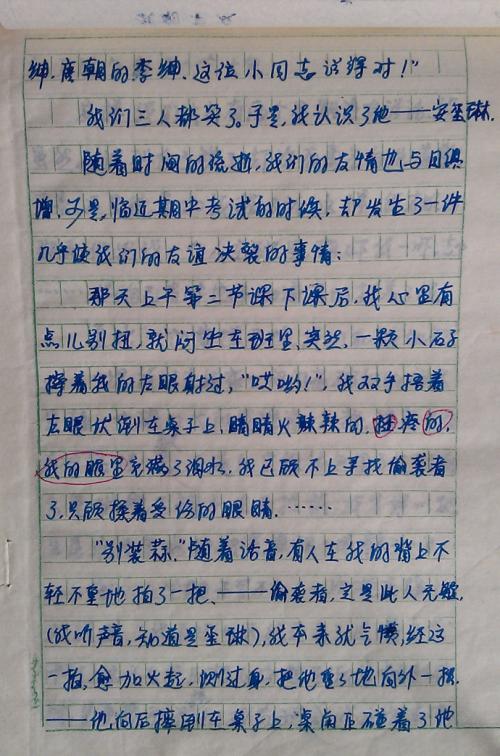 绅.唐朝的李绅.这位小同志说得对！"
我们三人都笑了。于是,我认识了他——安玺琳.
随着时间的流逝,我们的友情也与日俱
增.可是,临近期中考试的时候,却发生了一件
几乎使我们的友谊决裂的事情：
那天上午第二节课下课后,我心里有
点儿别扭,就闷坐在班里、突然,一颗小石子
擦着我的左眼射过,"哎哟！",我双手捂着
左眼伏倒在桌子上,睛睛火辣辣的,疼的.
我的眼里充满了泪水,我已顾不上寻找偷袭者
了.只顾揉着受伤的眼睛.……
"别装蒜."随着话音,有人在我的背上不
轻不重地拍了一把、——偷袭者,定是此人无疑.
(我听声音,知道是玺琳),我本来就气愤,经这
一拍,愈加火起,侧过身,把他重重地向外一推.
——他向后摔倒在桌子上,桌角正碰着了他